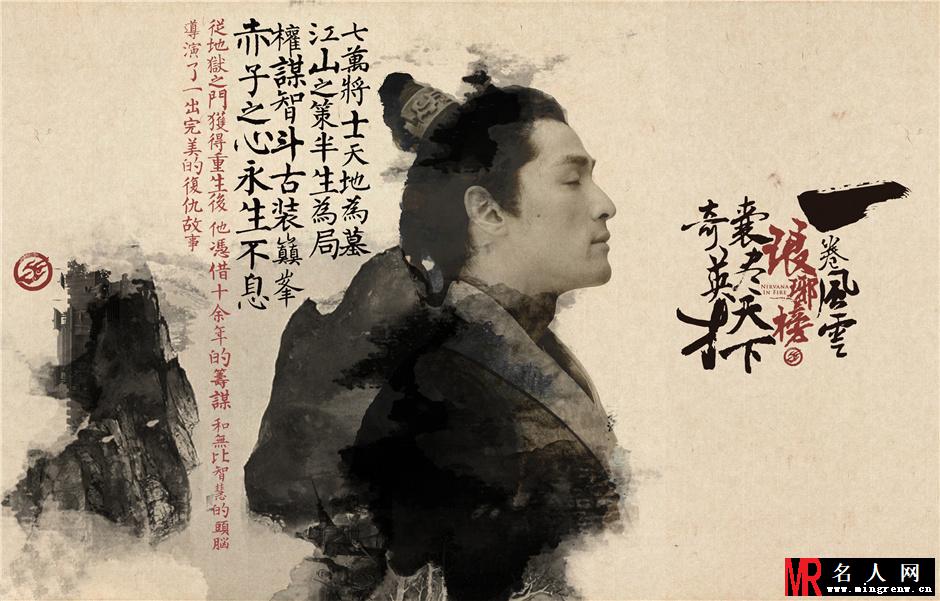 一卷風雲
琅琊榜
NIRVANA
IN FIRE
囊尽天下
奇英才
七萬將士天地為墓
江山之策半生為局
權謀智斗古装巔峯
赤子之心永生不息
從地獄之門獲得重生後 他憑借十余年的籌謀 和無比智慧的頭腦
導演了一出完美的復仇故事
MR 名人网
www.mingrenw.cn